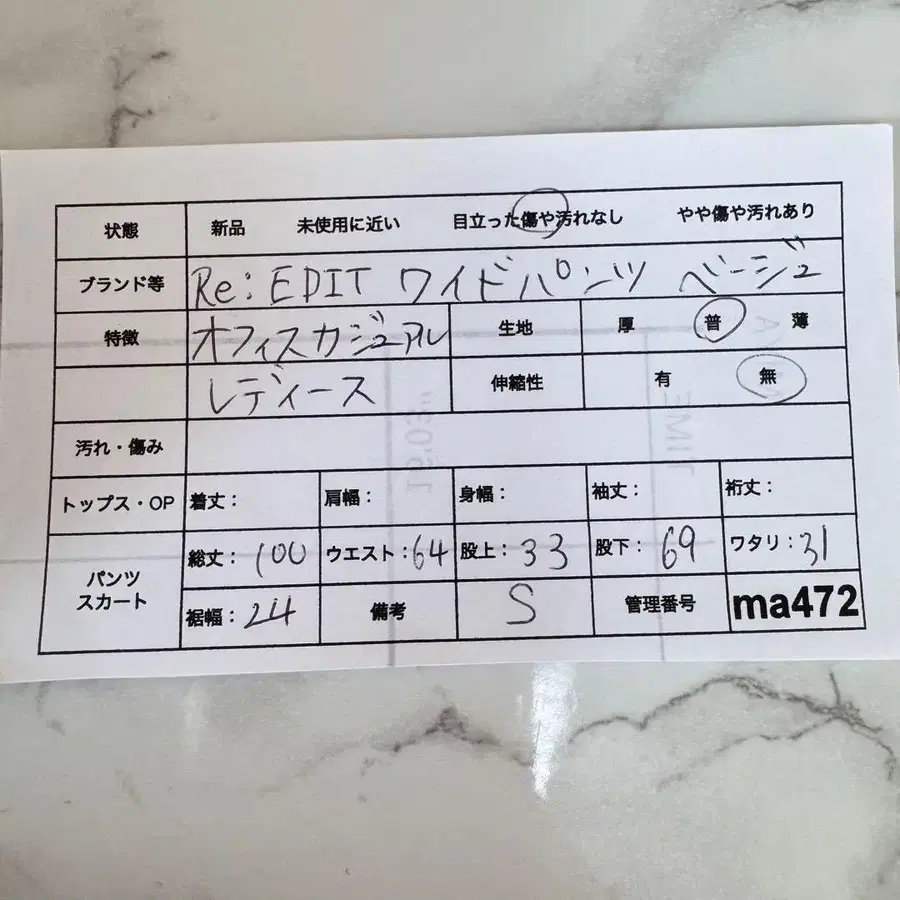 状態 新品 未使用に近い 目立った傷や汚れなし やや傷や汚れあり
ブランド等 Re:EDIT ワイドパンツ ベージュ
特徴 オフィスカジュアル 生地 厚 普 薄
レディース 伸縮性 有 無
汚れ・傷み
トップス・OP 着丈: 肩幅: 身幅: 袖丈: 裄丈:
パンツ スカート 総丈:100 ウエスト:64 股上:33 股下:69 ワタリ:31
裾幅:24 備考 S 管理番号 ma472